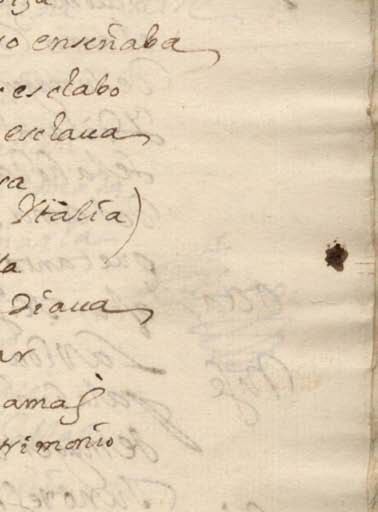 so enseñaba
esclabo
esclaua
sa
Italia)
ta
diaua
ar
amas
trimonio